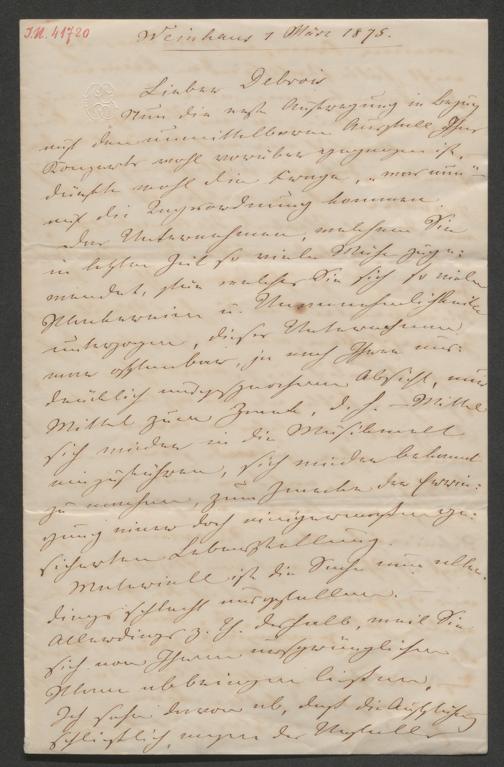 I.N. 41720
Weinhaus 1 März 1878.
Lieber Debrois
Nun die erste Aufregung in Bezug
auf den unmittelbaren Ausfall Ihres
Konzerts wohl vorüber gegangen ist,
dürfte wohl die Frage, „was nun“
auf die Tagesordnung kommen.
Das Unternehmen, welchem Sie
in letzter Zeit so viele Mühe zuge-
wendet, für welches Sie sich so vielen
Plackereien u. Unannehmlichkeiten
unterzogen, dieses Unternehmen
war offenbar, ja nach Ihrer aus-
drücklich ausgesprochenen Absicht, nur
Mittel zum Zweck, d. h. Mittel
sich wieder in die Musikwelt
einzuführen, sich wieder bekannt
zu machen, zum Zwecke der Errin-
gung einer doch einigermaßen ge-
sicherten Lebensstellung.
Materiell ist die Sache nun aller-
dings schlecht ausgefallen.
Allerdings z. Th. deshalb, weil Sie
sich von Ihrem ursprünglichen
Plane abbringen ließen.
Ich sehe davon ab, daß die
schließlich wegen der